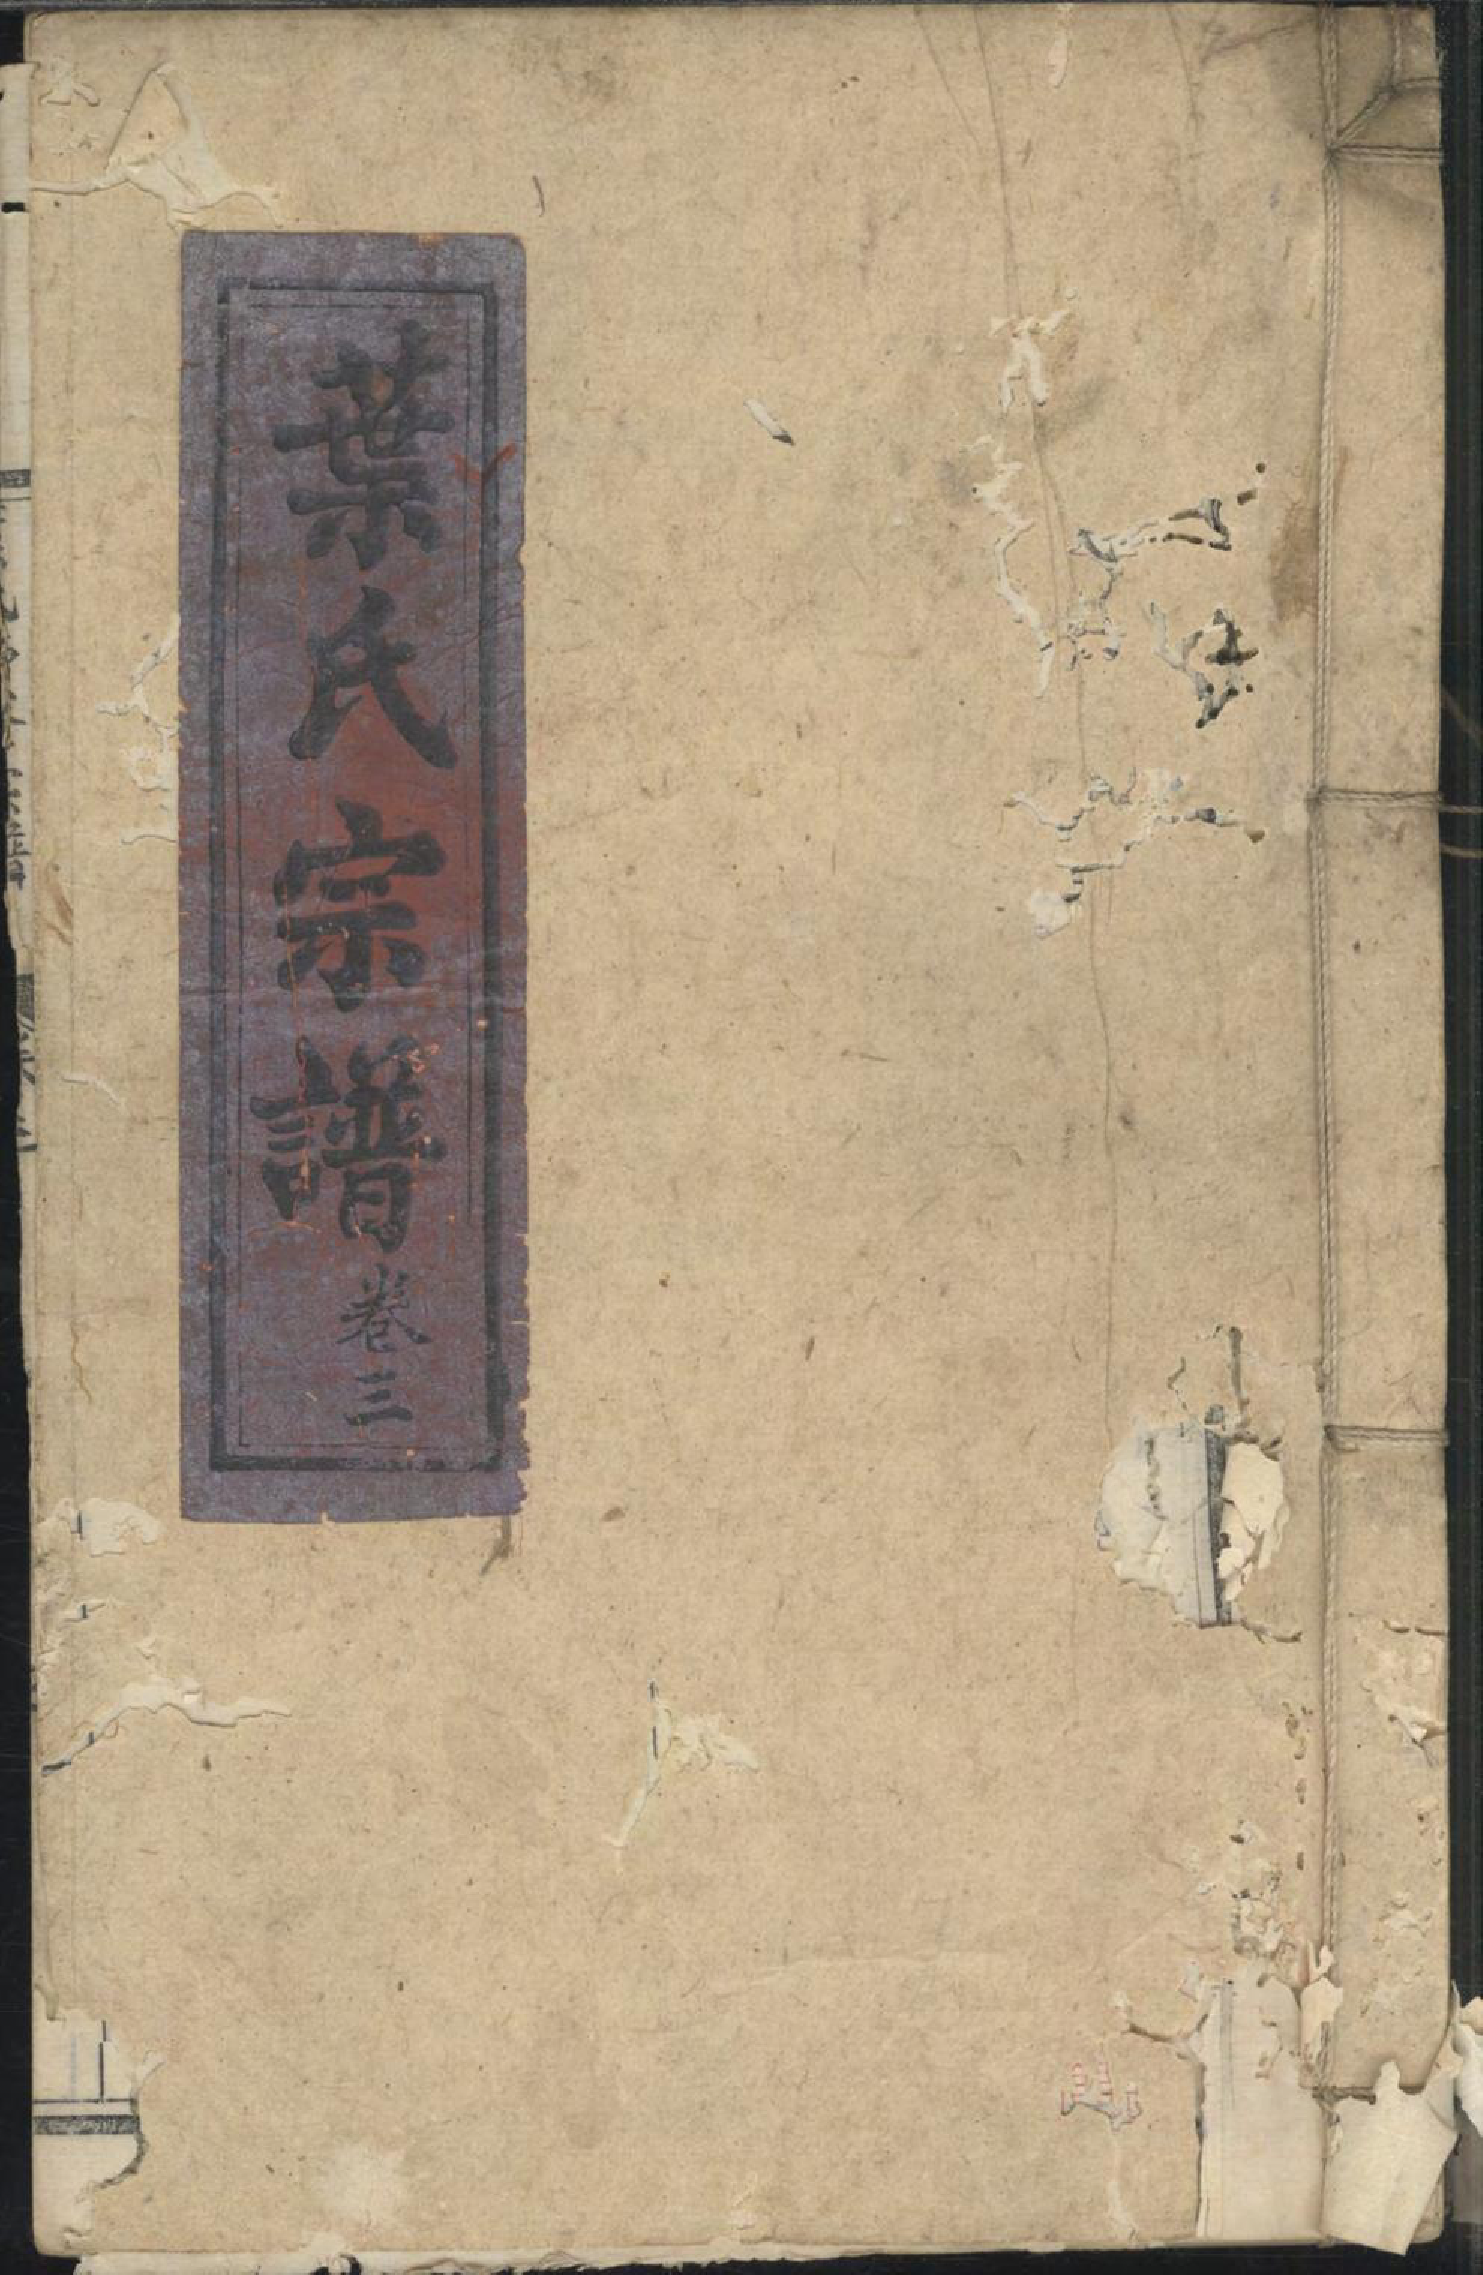 葉氏宗譜
卷三